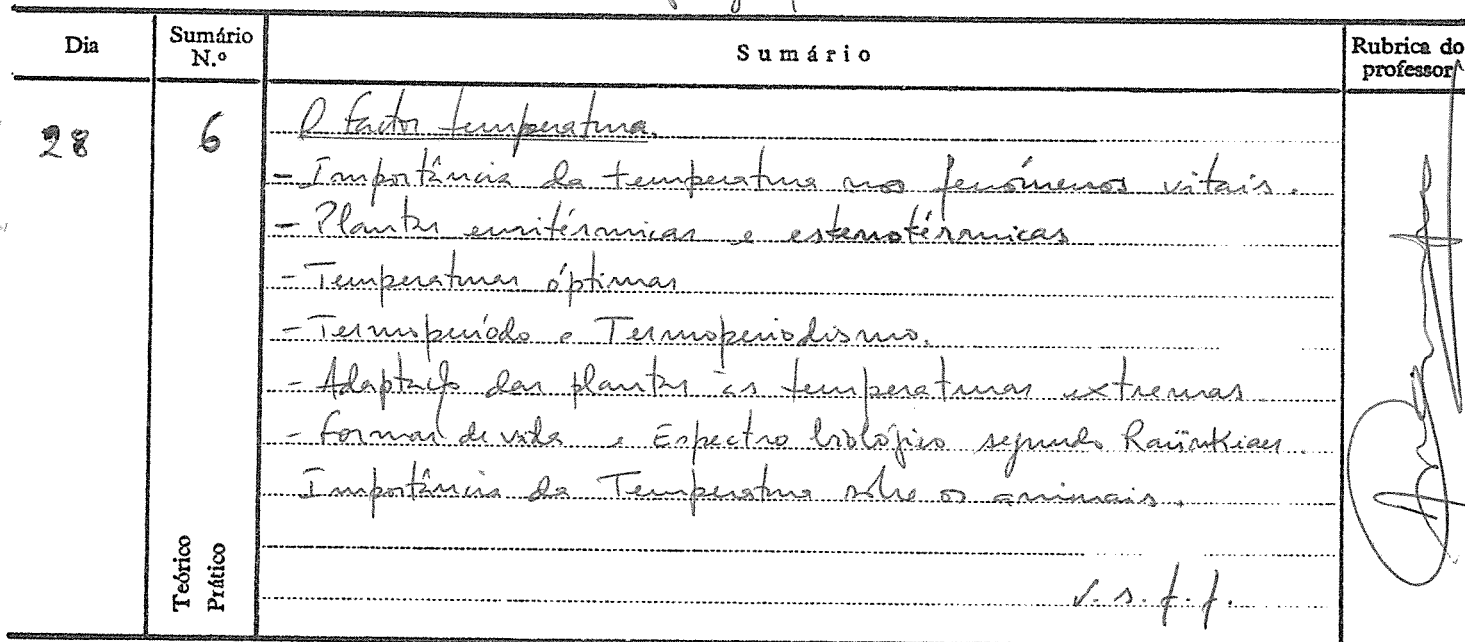 Dia
Sumário N.º
Sumário
Rubrica do professor
28
6
O factor temperatura.
- Importância da temperatura nos fenómenos vitais.
- Plantas euritérmicas e estenotérmicas
- Temperaturas óptimas
- Termoperíodo e Termoperiodismo.
- Adaptação das plantas às temperaturas extremas
- Formas de vida e Espectro biológico segundo Raünkiaer.
Importância da Temperatura sôbre os animais.
Teórico
Prático
v. s. f. f.